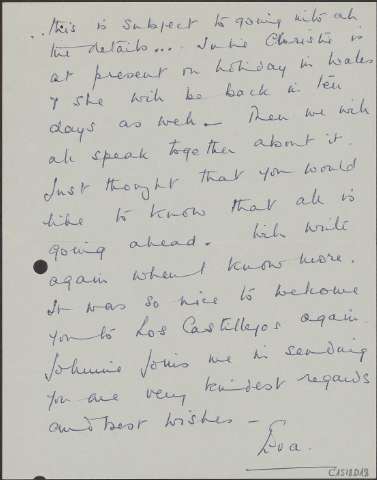 ... this is subject to going into all
the details... Julie Christie is
at present on holiday in Wales
& she will be back in ten
days as well - Then we will
all speak together about it.
Just thought that you would
like to know that all is
going ahead. Will write
again when I know more.
It was so nice to welcome
you to Los Castillejos again.
Johnnie joins me in sending
you are very kindest regards
and best wishes -
Eva.
CAS18DA8